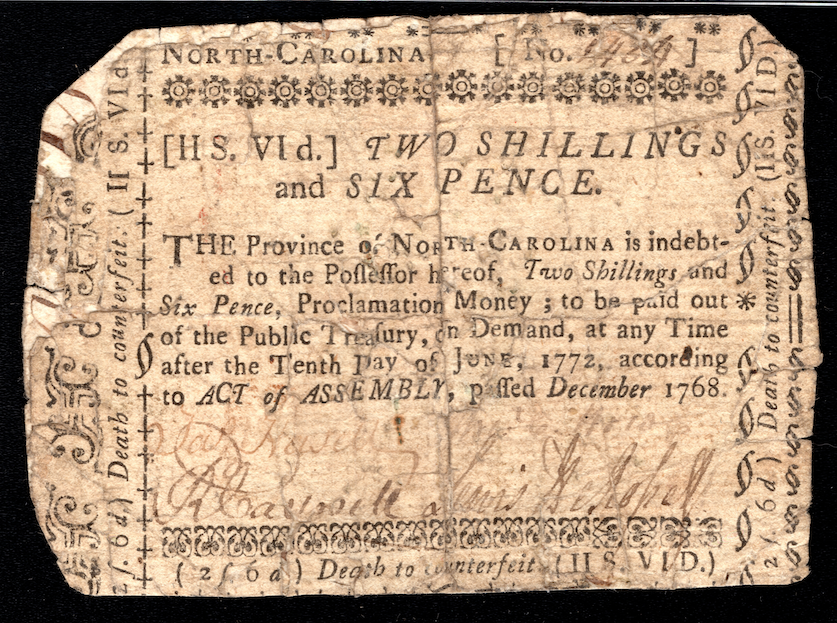 NORTH-CAROLINA [ No. 2404 ]
[IIS. VId.] TWO SHILLINGS
and SIX PENCE.
THE Province of NORTH-CAROLINA is indebt-
ed to the Poſſeſſor hereof, Two Shillings and
Six Pence, Proclamation Money ; to be paid out
of the Public Treaſury, on Demand, at any Time
after the Tenth Day of JUNE, 1772, according
to ACT of ASSEMBLY, paſſed December 1768.
Lewis H. De Roſſett
( 2ſ 6d ) Death to counterfeit. (II S. VI D.)
2ſ. 6d.) Death to counterfeit. (II S. VId
2ſ 6d.) Death to counterfeit. (IIS. VID)